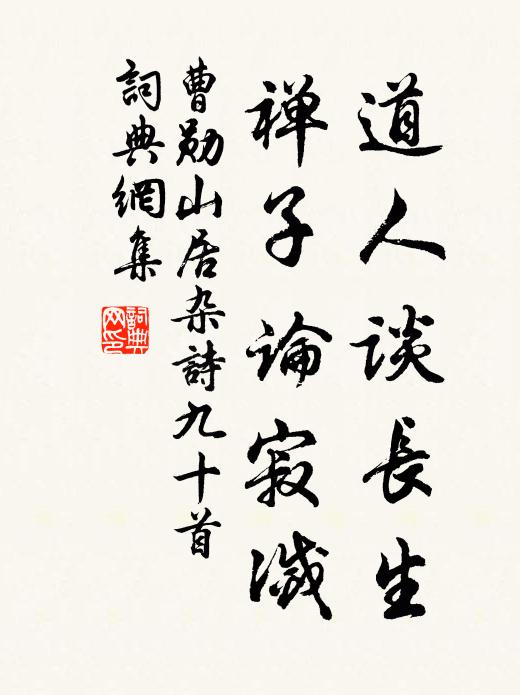 道人谈長生
禅子論寂滅
曹勋山居杂詩九十首
詞典網集
詞典
网印